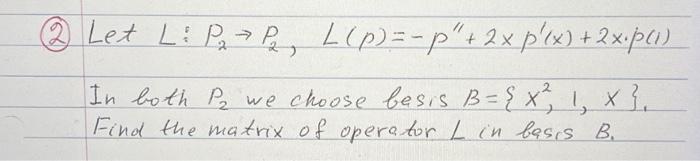 ② Let L: P₂ → P₂, L(p) = -p'' + 2x p'(x) + 2x·p(1)
In both P₂ we choose besis B = { x², 1, x }.
Find the matrix of operator L in basis B.